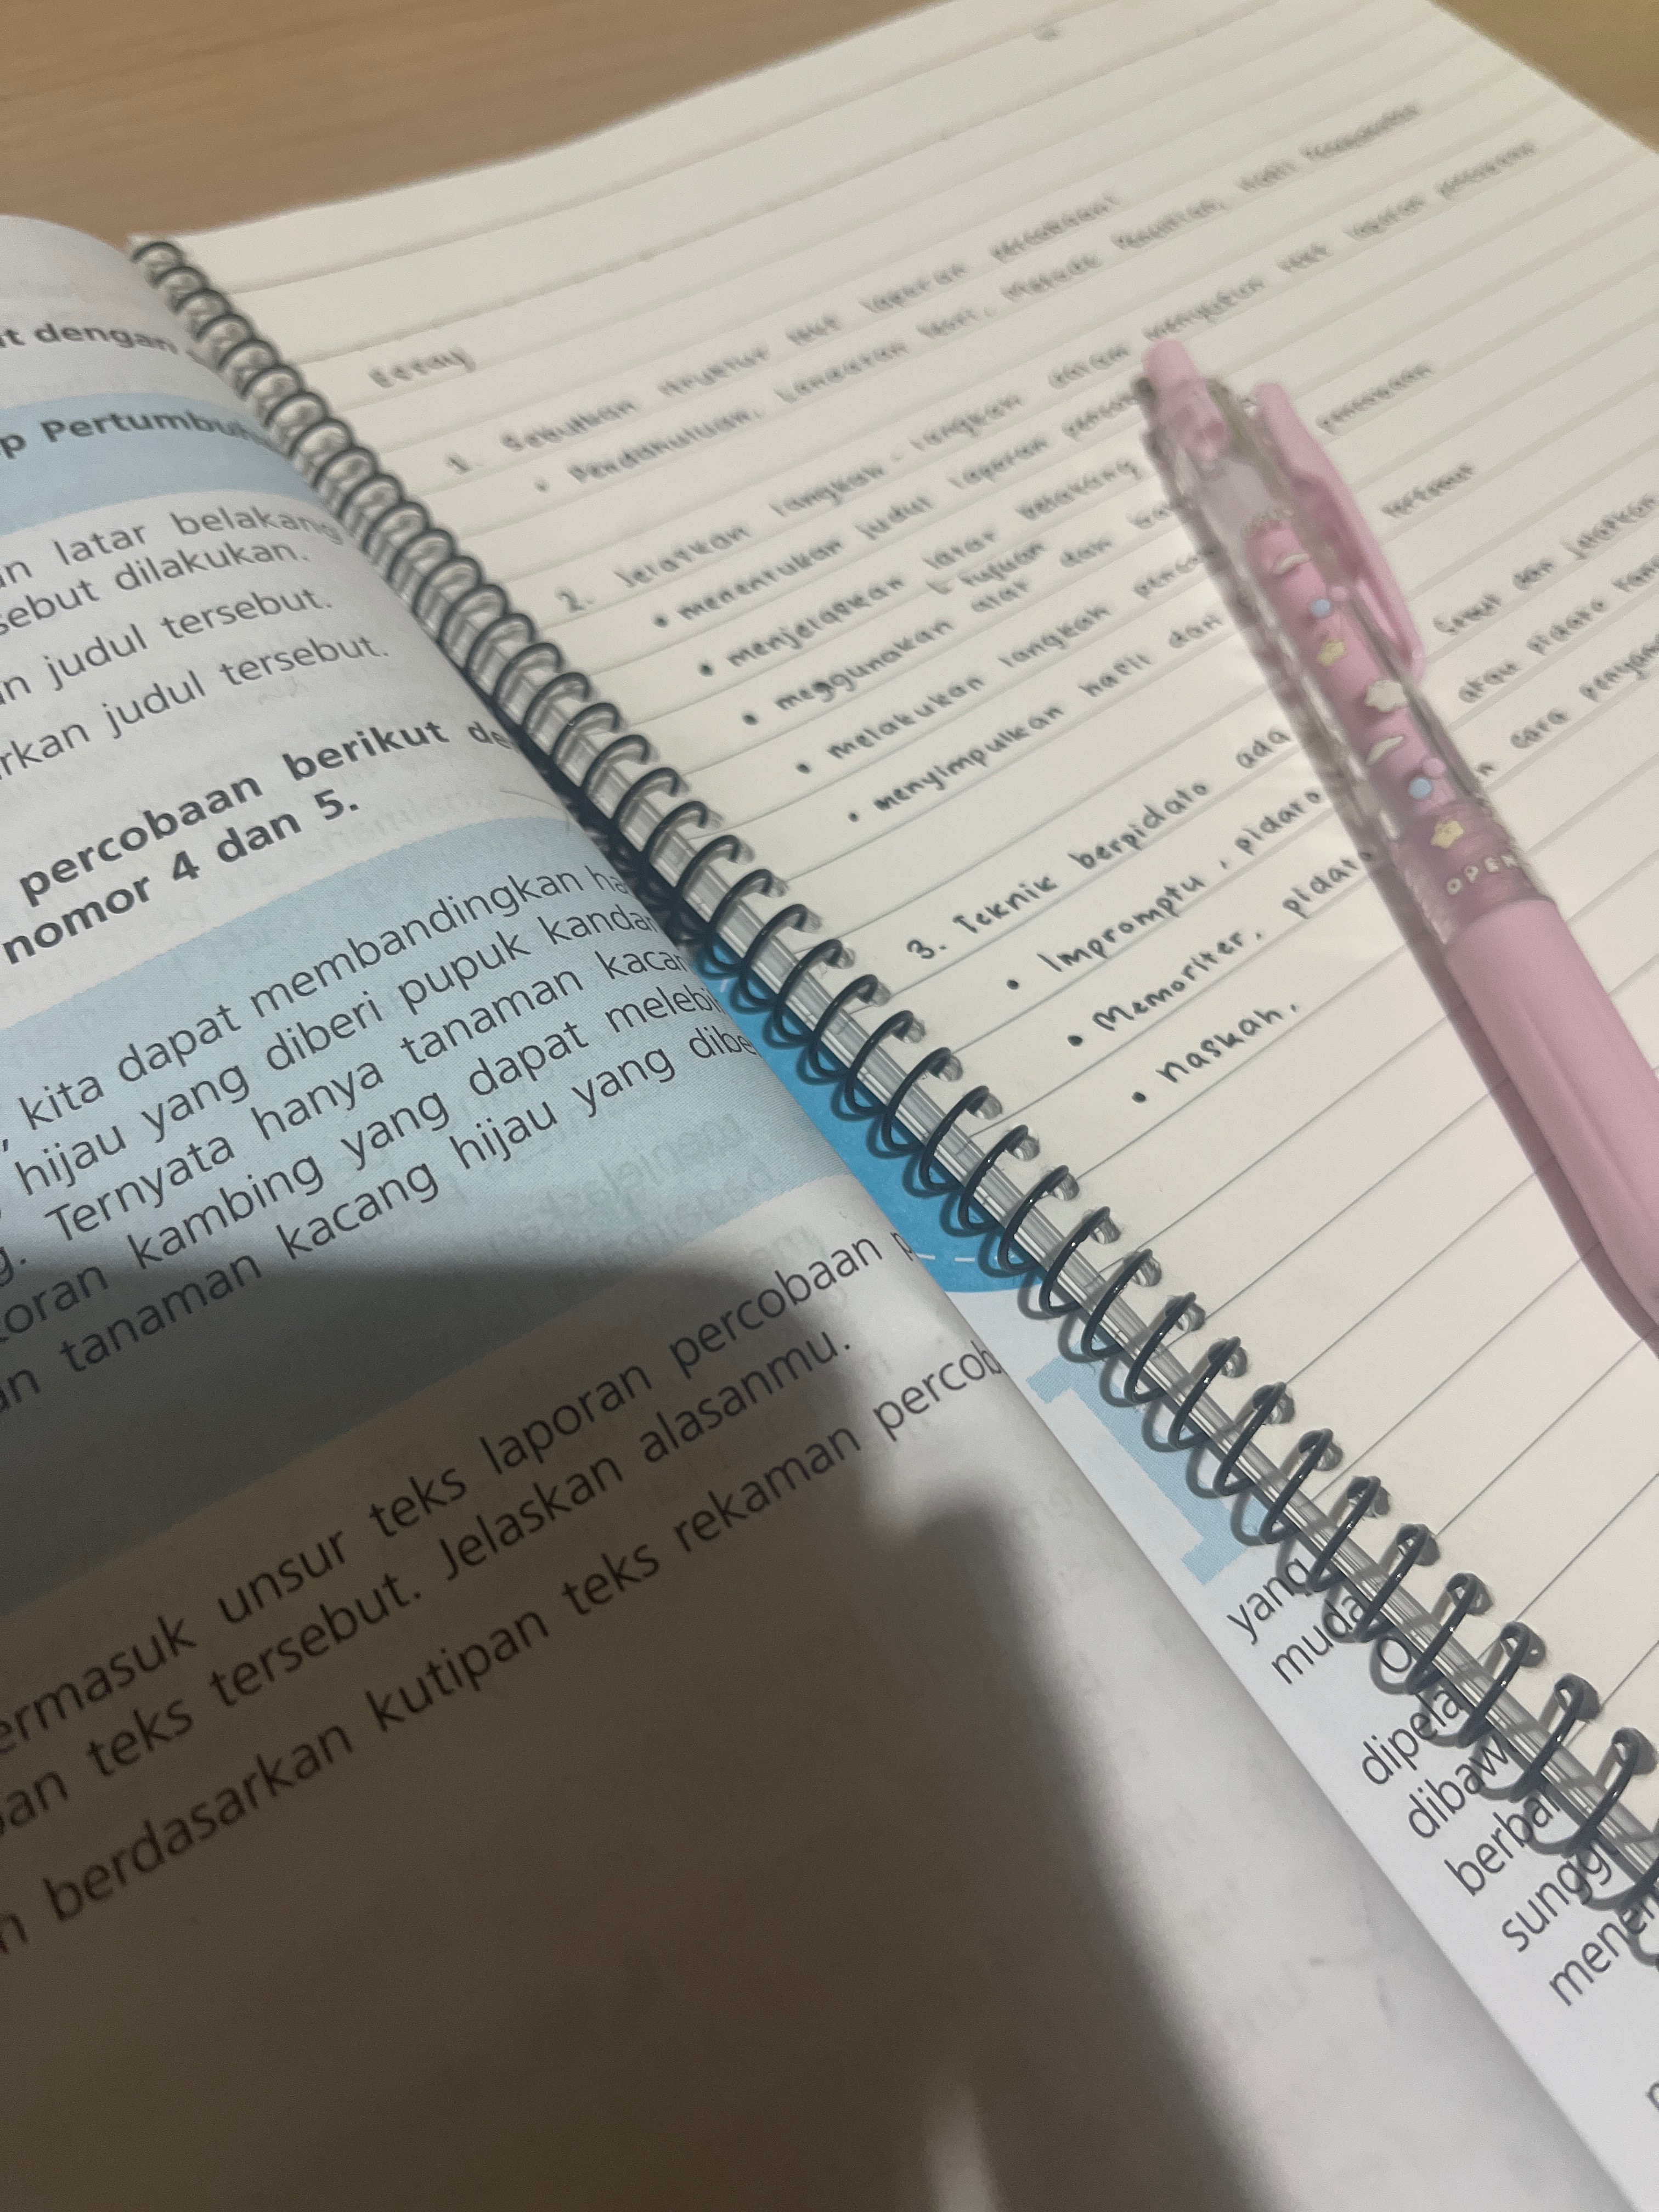 t dengan
p Pertumbuh
n latar belakang
sebut dilakukan.
n judul tersebut.
rkan judul tersebut.
percobaan berikut de
nomor 4 dan 5.
, kita dapat membandingkan ha
hijau yang diberi pupuk kandan
g. Ternyata hanya tanaman kacan
toran kambing yang dapat melebi
an tanaman kacang hijau yang dibe
ermasuk unsur teks laporan percobaan p
an teks tersebut. Jelaskan alasanmu.
n berdasarkan kutipan teks rekaman percob
1
yang
muda
O
dipela
dibaw
berbar
sungg
menen
Essay
1. Sebutkan struktur teks laporan percobaan!
• Pendahuluan, Landasan teori, Metode Penelitian, Hasil
2. Jelaskan langkah-langkah dalam menyusun teks laporan percobaan
• menentukan judul laporan perco
• menjelaskan latar belakang percobaan
& tujuan
• meggunakan alat dan ba
• melakukan langkah perco tersebut
• menyimpulkan hasil dari
3. Teknik berpidato ada Sebut dan jelaskan
• Impromptu, pidato atau pidato tan
• Memoriter, pidato cara penyam
• naskah,
OPEN